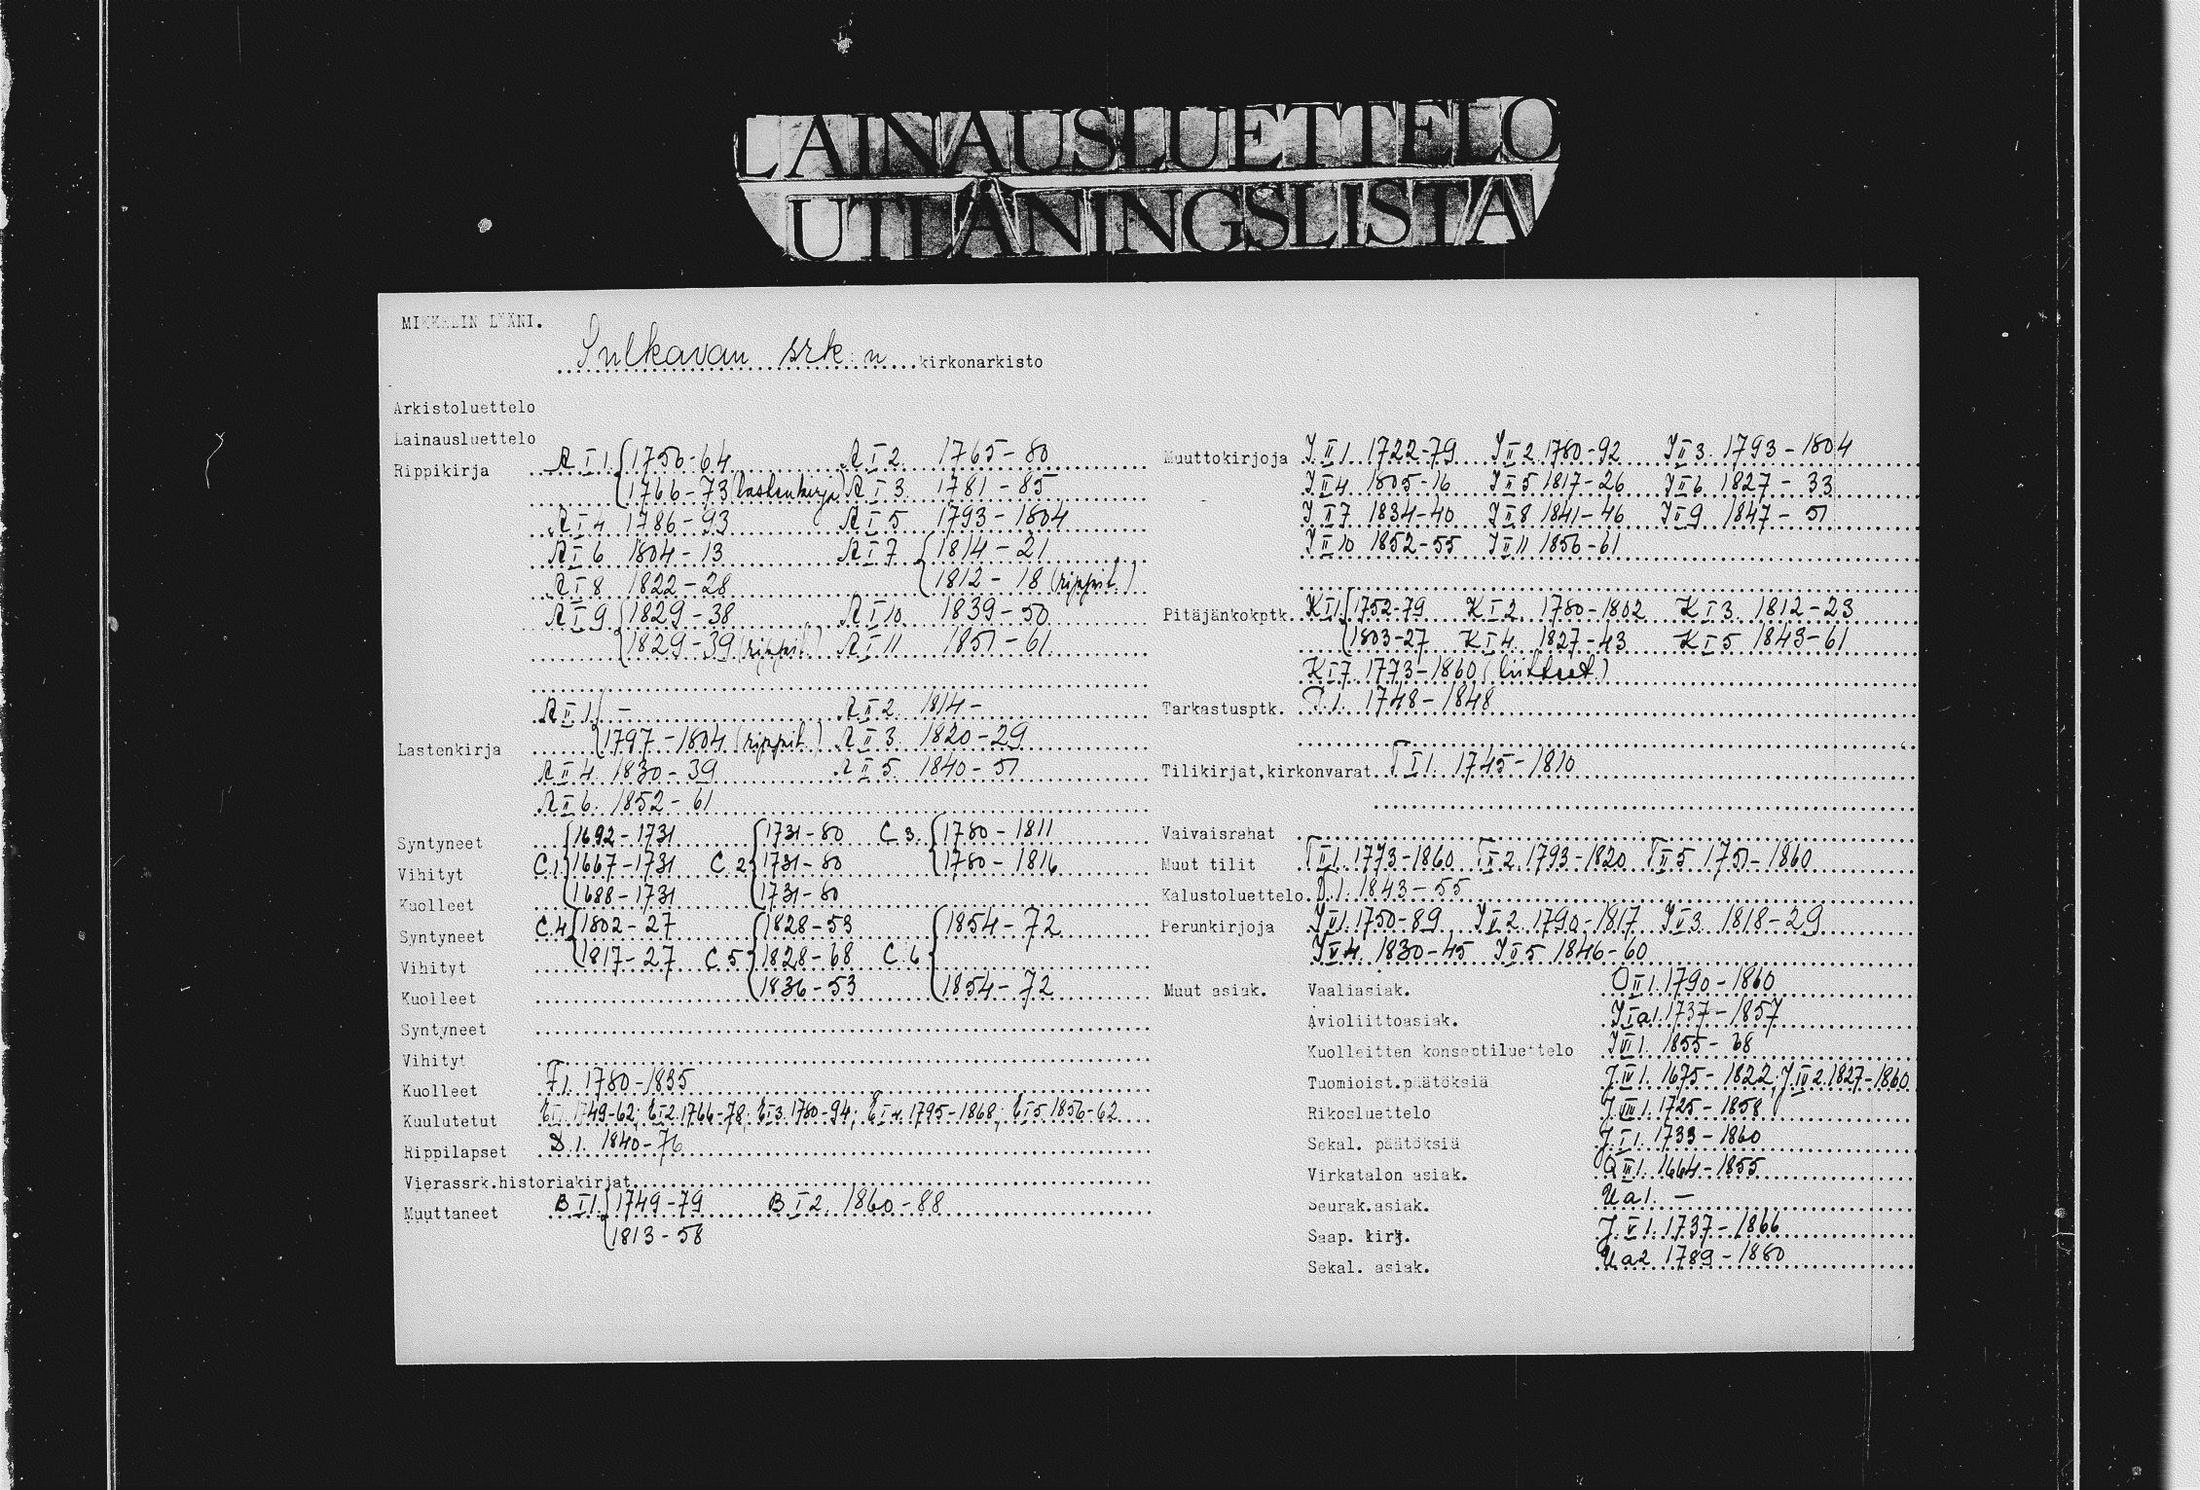 LAINAUSLUETTELO
UTLÅNINGSLISTA
MIKKELIN LÄÄNI.
Sulkavan srk:n kirkonarkisto
Arkistoluettelo
Lainausluettelo
Rippikirja A I 1. 1750-64 A I 2. 1765-80
1766-73 (lastenkirja) A I 3. 1781-85
A I 4 1786-93 A I 5 1793-1804
A I 6 1804-13 A I 7 1814-21
A I 8 1822-28 1812-18 (rippit.)
A I 9 1829-38 A I 10 1839-50
1829-39 (rippit.) A I 11 1851-61
A II 1. - A II 2. 1814-
Lastenkirja 1797-1804 (rippit.) A II 3. 1820-29
A II 4. 1830-39 A II 5. 1840-51
A II 6. 1852-61
Syntyneet 1692-1731 1731-80 C 3. 1780-1811
Vihityt C.1. 1667-1731 C.2 1731-80 1780-1816
Kuolleet 1688-1731 1731-80
Syntyneet C.4 1802-27 1828-53 1854-72
Vihityt 1817-27 C.5 1828-68 C.6
Kuolleet 1836-53 1854-72
Syntyneet
Vihityt
Kuolleet F1. 1780-1835
Kuulutetut E I 1. 1749-62; E I 2. 1766-78; E I 3. 1780-94; E I 4. 1795-1868; E I 5. 1856-62
Rippilapset D.1. 1840-76
Vierassrk.historiakirjat
Muuttaneet B I 1. 1749-79 B I 2. 1860-88
1813-58
Muuttokirjoja J II 1. 1722-79 J II 2. 1780-92 J II 3. 1793-1804
J II 4 1805-16 J II 5 1817-26 J II 6 1827-33
J II 7 1834-40 J II 8 1841-46 J II 9 1847-51
J II 10 1852-55 J II 11 1856-61
Pitäjänkokptk. K I 1. 1752-79 K I 2. 1780-1802 K I 3. 1812-23
1803-27 K I 4. 1827-43 K I 5 1843-61
K I 7 1773-1860 (liitteet)
Tarkastusptk. 1. 1748-1848
Tilikirjat,kirkonvarat T I 1. 1745-1810
Vaivaisrahat
Muut tilit T II 1. 1773-1860 T II 2. 1793-1820 T II 5 1751-1860
Kalustoluettelo 1. 1843-55
Perunkirjoja 1. 1750-89 2. 1790-1817 3. 1818-29
4. 1830-45 5 1846-60
Muut asiak. Vaaliasiak. O II 1. 1790-1860
Avioliittoasiak. J I a1. 1737-1857
Kuolleitten konseptiluettelo 1. 1855-68
Tuomioist.päätöksiä J IV 1. 1675-1822, J IV 2. 1827-1860
Rikosluettelo J III 1. 1725-1858
Sekal. päätöksiä J I 1. 1733-1860
Virkatalon asiak. 1. 1664-1855
Seurak.asiak. U a 1. -
Saap. kirj. J V 1. 1737-1866
Sekal. asiak. U a 2 1789-1880